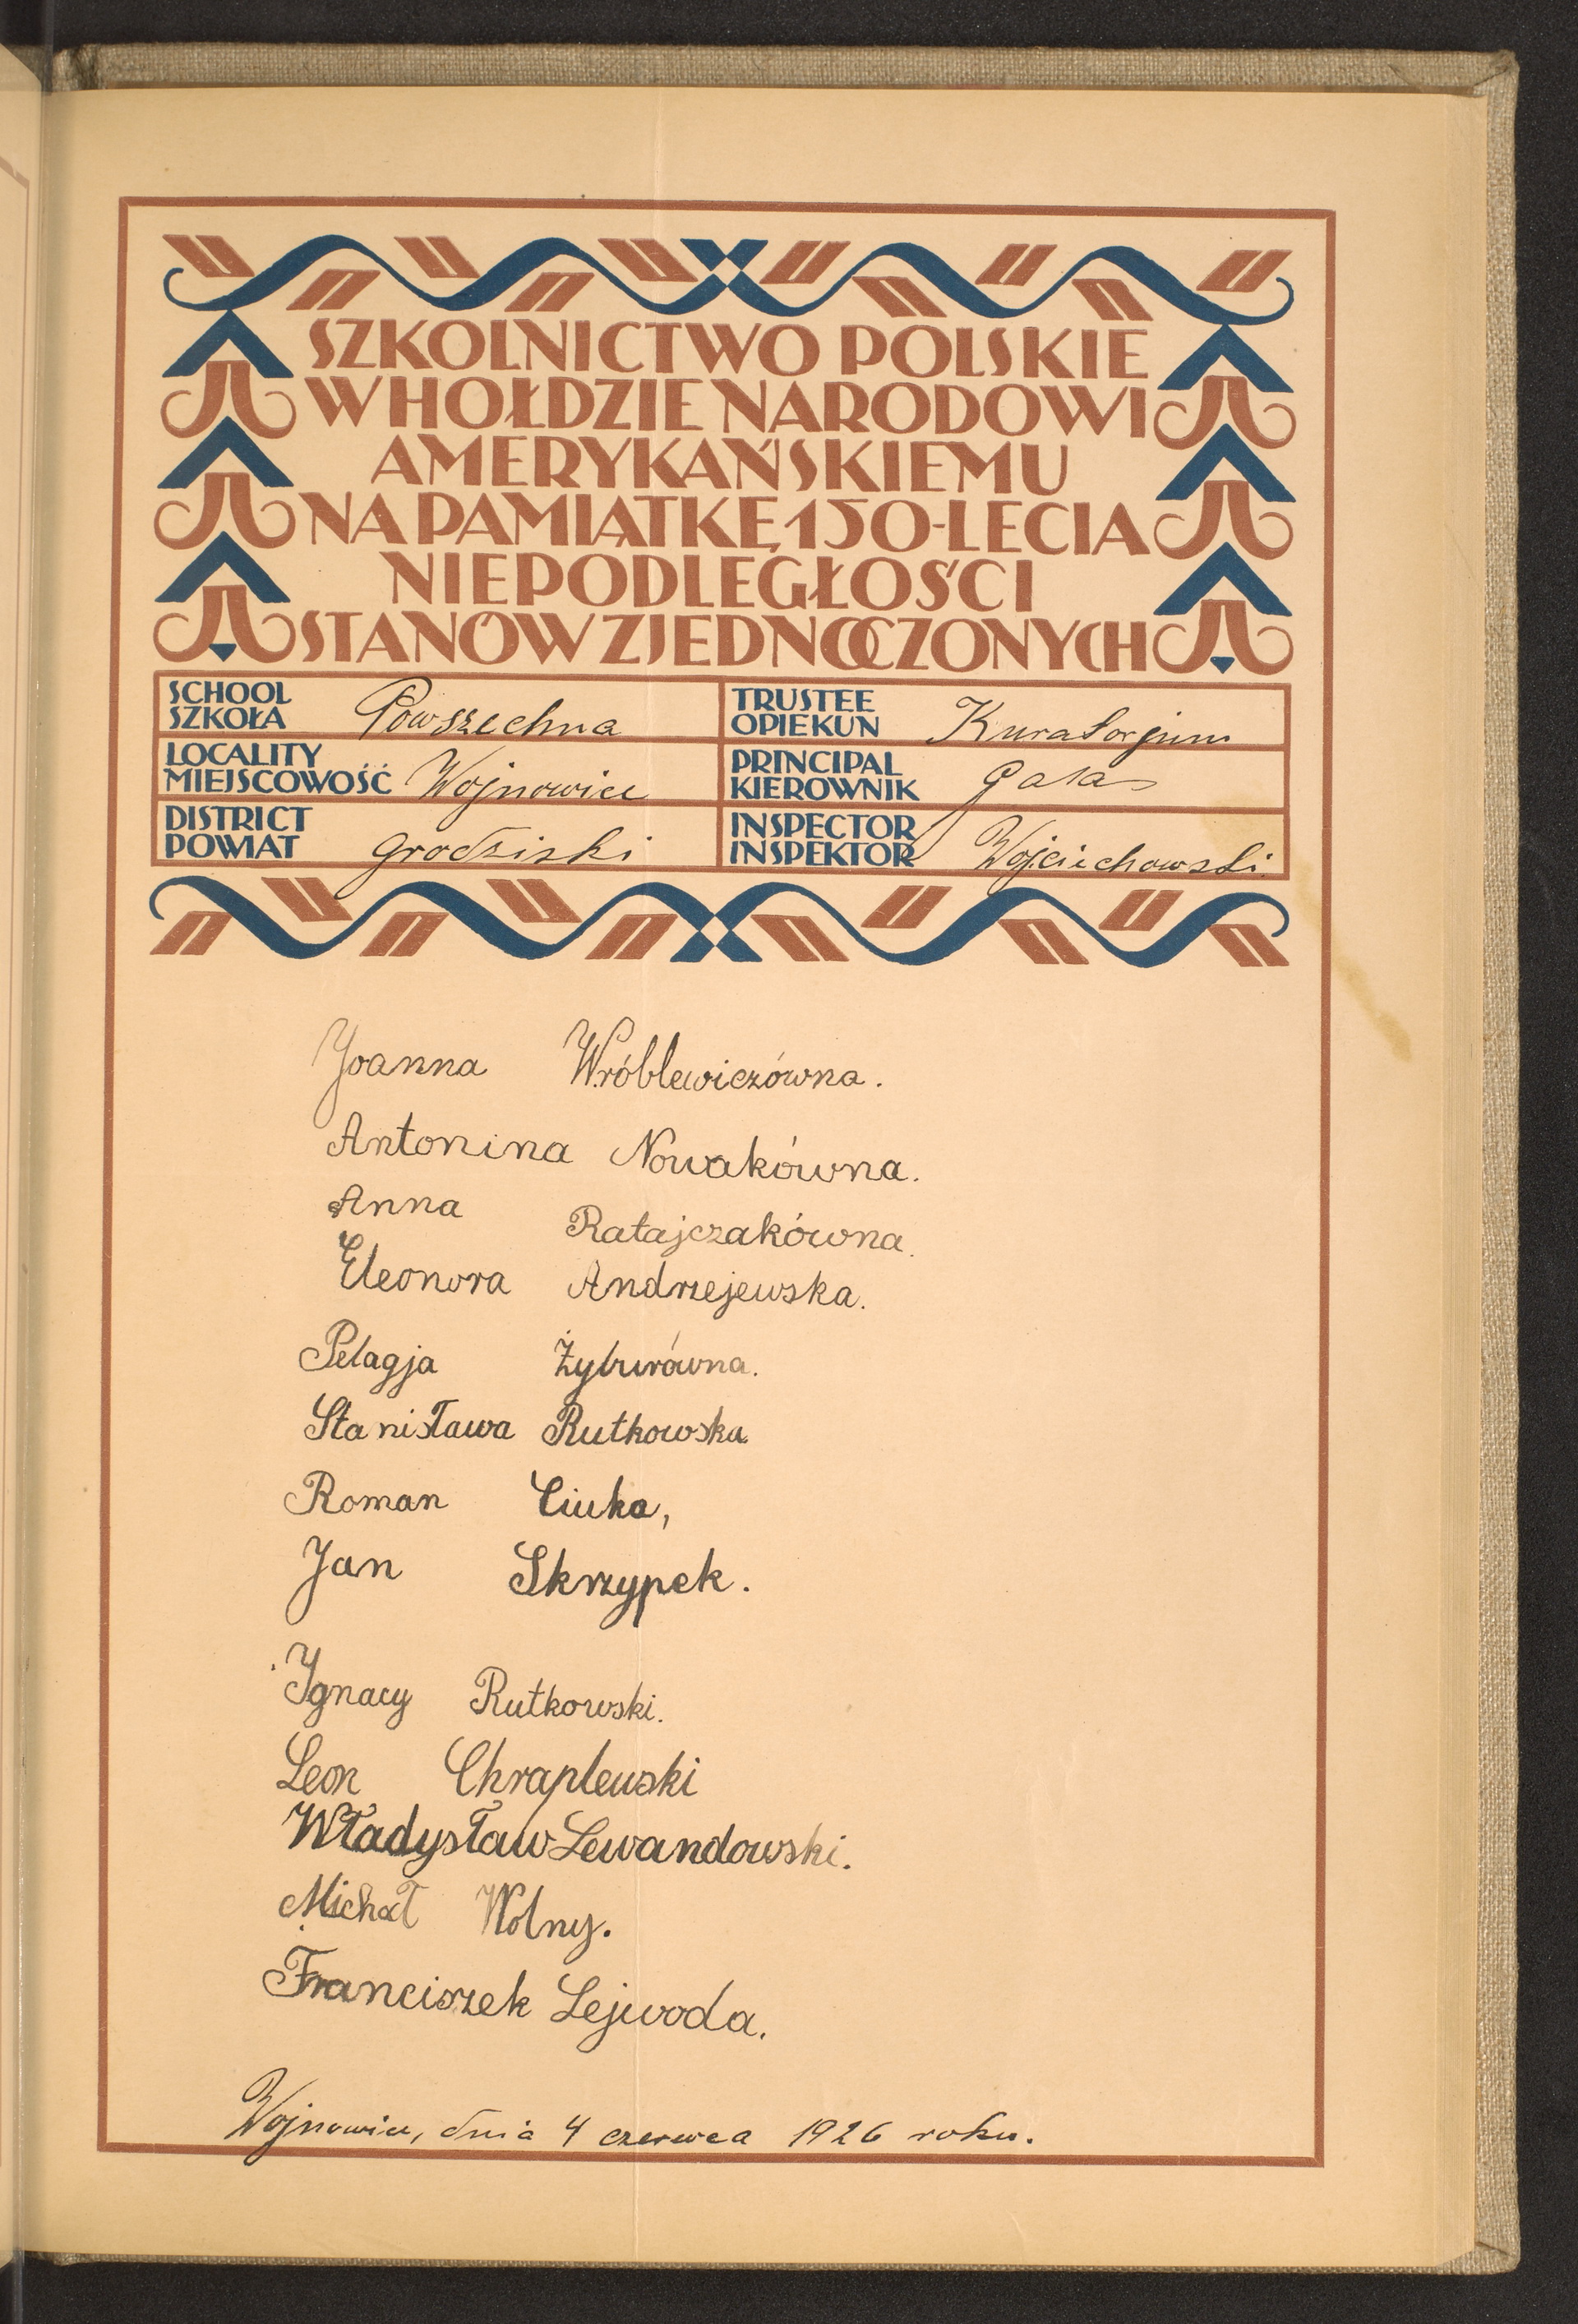 SZKOLNICTWO POLSKIE
W HOŁDZIE NARODOWI
AMERYKAŃSKIEMU
NA PAMIĄTKĘ 150-LECIA
NIEPODLEGŁOŚCI
STANÓW ZJEDNOCZONYCH
SCHOOL
SZKOŁA Powszechna
TRUSTEE
OPIEKUN Kuratorjum
LOCALITY
MIEJSCOWOŚĆ Wojnowice
PRINCIPAL
KIEROWNIK
DISTRICT
POWIAT grodziski
INSPECTOR
INSPEKTOR Wojciechowski
Joanna Wróblewiczówna.
Antonina Nowakówna.
Anna Ratajczakówna.
Eleonora Andrzejewska.
Pelagja Żyburówna.
Stanisława Rutkowska
Roman Ciuka,
Jan Skrzypek.
Ignacy Rutkowski.
Leon Chraplewski
Władysław Lewandowski.
Michał Wolny.
Franciszek Lejwoda.
Wojnowice, dnia 4 czerwca 1926 roku.